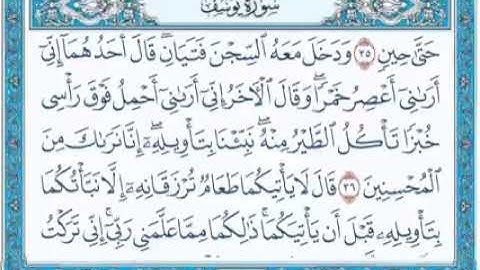 سُورَةُ يُوسُفَ
حَتَّىٰ حِينٍ ٣٥ وَدَخَلَ مَعَهُ ٱلسِّجْنَ فَتَيَانِۖ قَالَ أَحَدُهُمَآ إِنِّىٓ
أَرَىٰنِىٓ أَعْصِرُ خَمْرًاۖ وَقَالَ ٱلْأٓخَرُ إِنِّىٓ أَرَىٰنِىٓ أَحْمِلُ فَوْقَ رَأْسِى
خُبْزًا تَأْكُلُ ٱلطَّيْرُ مِنْهُۖ نَبِّئْنَا بِتَأْوِيلِهِۦٓۖ إِنَّا نَرَىٰكَ مِنَ
ٱلْمُحْسِنِينَ ٣٦ قَالَ لَا يَأْتِيكُمَا طَعَامٌ تُرْزَقَانِهِۦٓ إِلَّا نَبَّأْتُكُمَا
بِتَأْوِيلِهِۦ قَبْلَ أَن يَأْتِيَكُمَاۚ ذَٰلِكُمَا مِمَّا عَلَّمَنِى رَبِّىٓۚ إِنِّى تَرَكْتُ